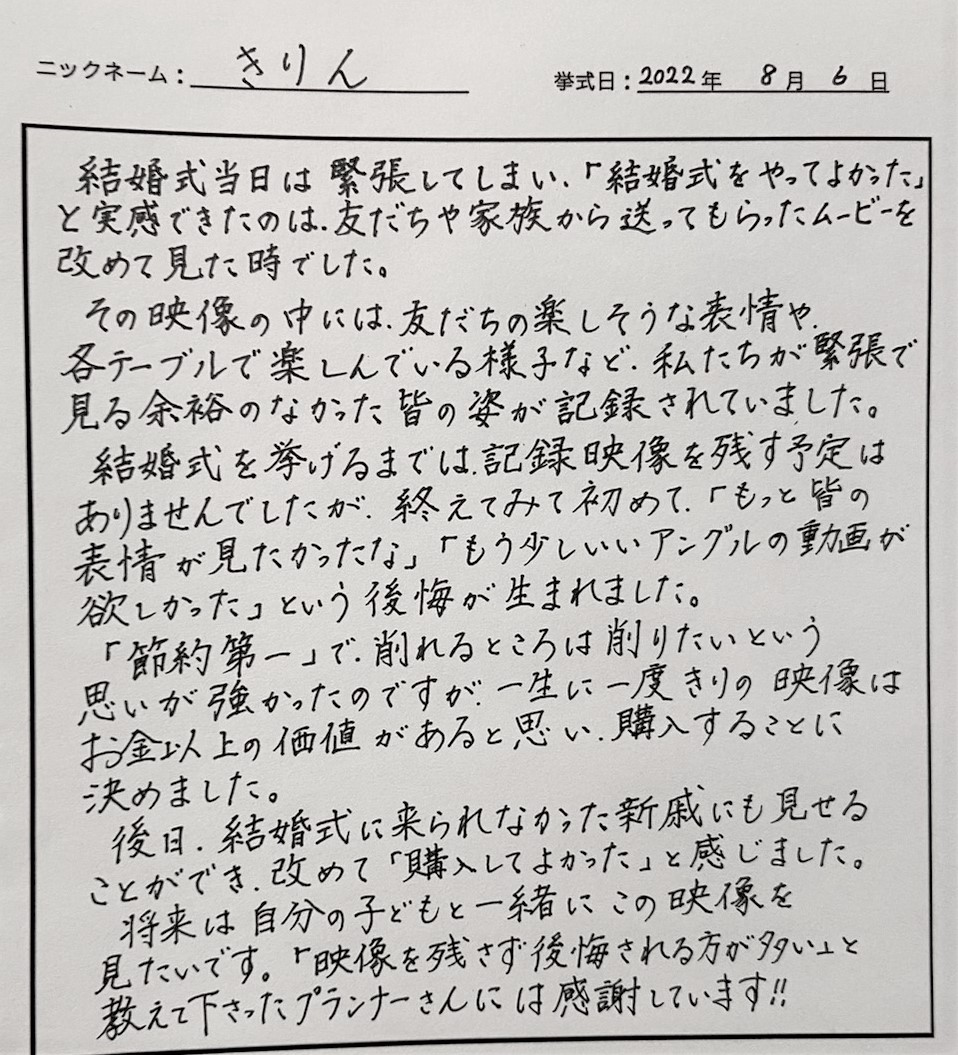 ニックネーム：きりん 挙式日：2022年 8月 6日
結婚式当日は緊張してしまい、「結婚式をやってよかった」
と実感できたのは、友だちや家族から送ってもらったムービーを
改めて見た時でした。
その映像の中には、友だちの楽しそうな表情や、
各テーブルで楽しんでいる様子など、私たちが緊張で
見る余裕のなかった皆の姿が記録されていました。
結婚式を挙げるまでは、記録映像を残す予定は
ありませんでしたが、終えてみて初めて、「もっと皆の
表情が見たかったな」「もう少しいいアングルの動画が
欲しかった」という後悔が生まれました。
「節約第一」で、削れるところは削りたいという
思いが強かったのですが、一生に一度きりの映像は
お金以上の価値があると思い、購入することに
決めました。
後日、結婚式に来られなかった新戚にも見せる
ことができ、改めて「購入してよかった」と感じました。
将来は自分の子どもと一緒にこの映像を
見たいです。「映像を残さず後悔される方が多い」と
教えて下さったプランナーさんには感謝しています!!